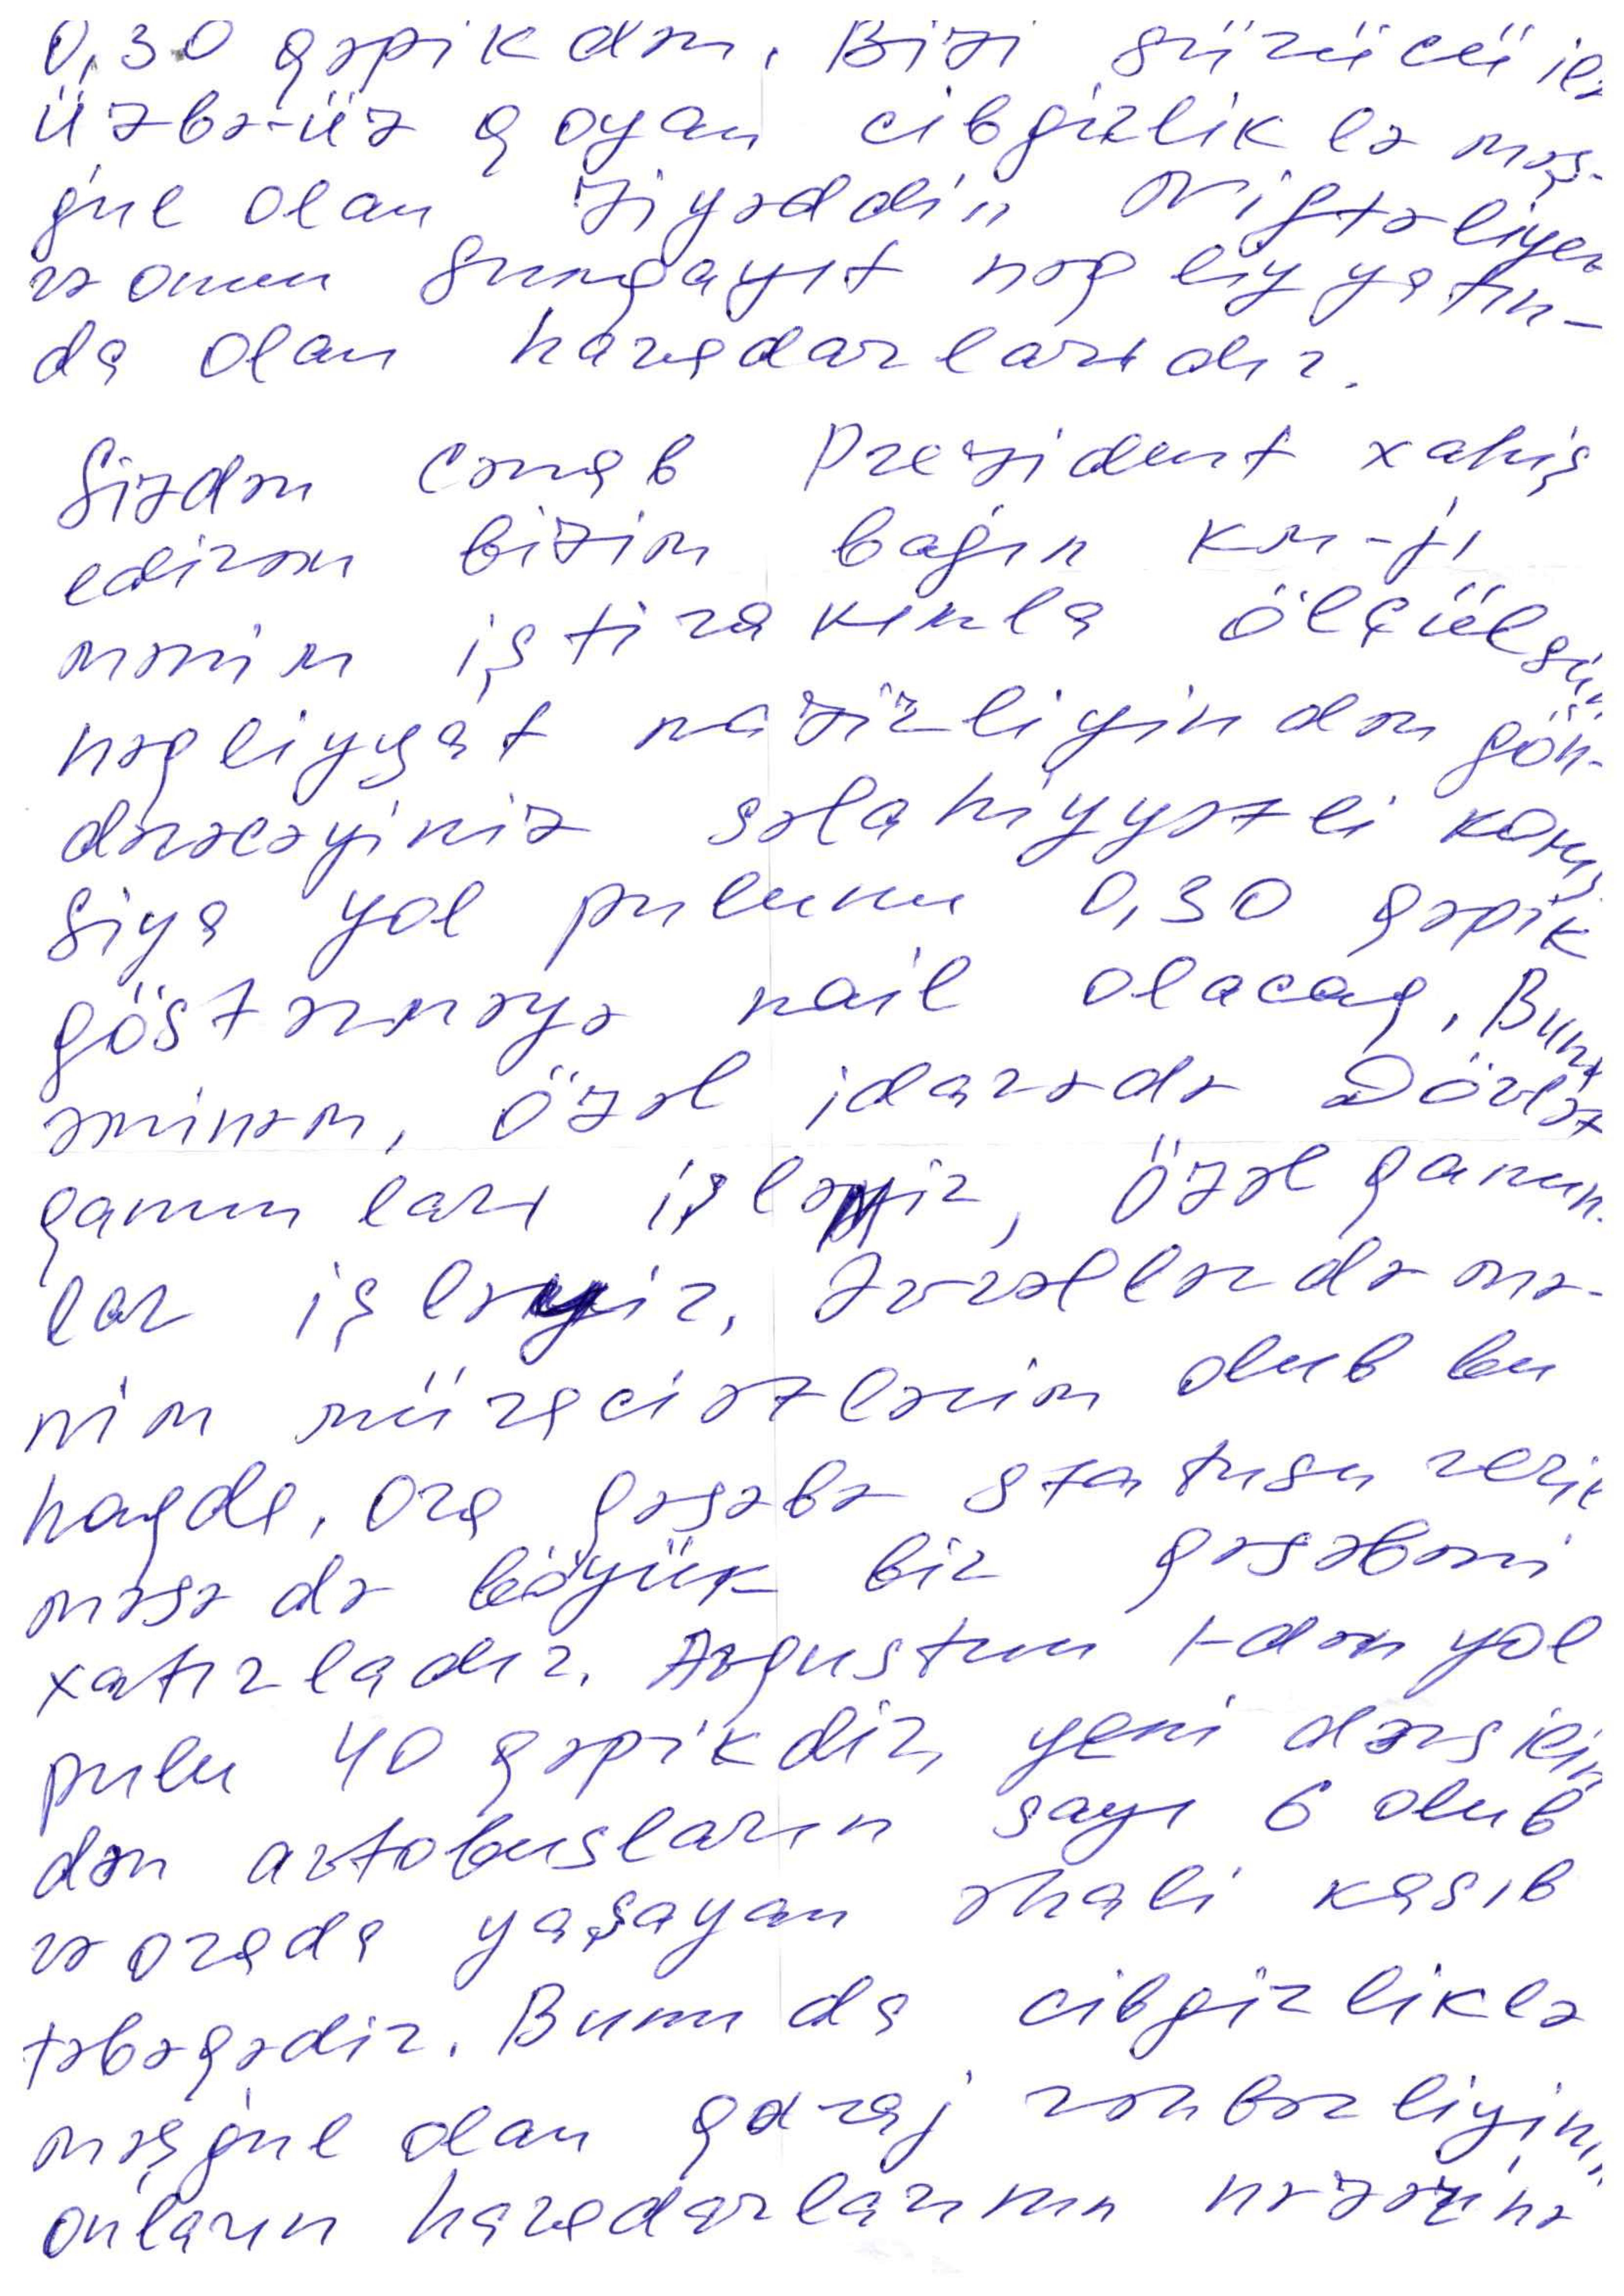 0,30 qəpikdən. Bizi sürücü ilə
üzbə-üz qoyan cibgirliklə məş-
ğul olan Ziyəddin Niftəliyev
və onun Sumqayıt nəqliyyatın-
da olan havadarlarıdır.
Sizdən Cənab Prezident xahiş
edirəm bizim bağın km-ji
mənim iştirakımla ölçülsün
nəqliyyat nazirliyindən gön-
dərəcəyiniz səlahiyyətli komis
siya yol pulunu 0,30 qəpik
göstərməyə nail olacaq. Buna
əminəm, özəl idarədə Dövlət
qanunları işləmir, özəl qanun-
lar işləyir. Əvvəllərdə mə-
nim müraciətlərim olub bu
haqda. Ora qəsəbə statusu veril
məsə də böyük bir qəsəbəni
xatırladır. Avqustun 1-dən yol
pulu 40 qəpikdir, yeni dərs ilin
dən avtobusların sayı 6 olub
və orada yaşayan əhali kasıb
təbəqədir. Bunu da cibgirliklə
məşğul olan qaraj rəhbərliyinin
onların havadarlarının nəzərinə